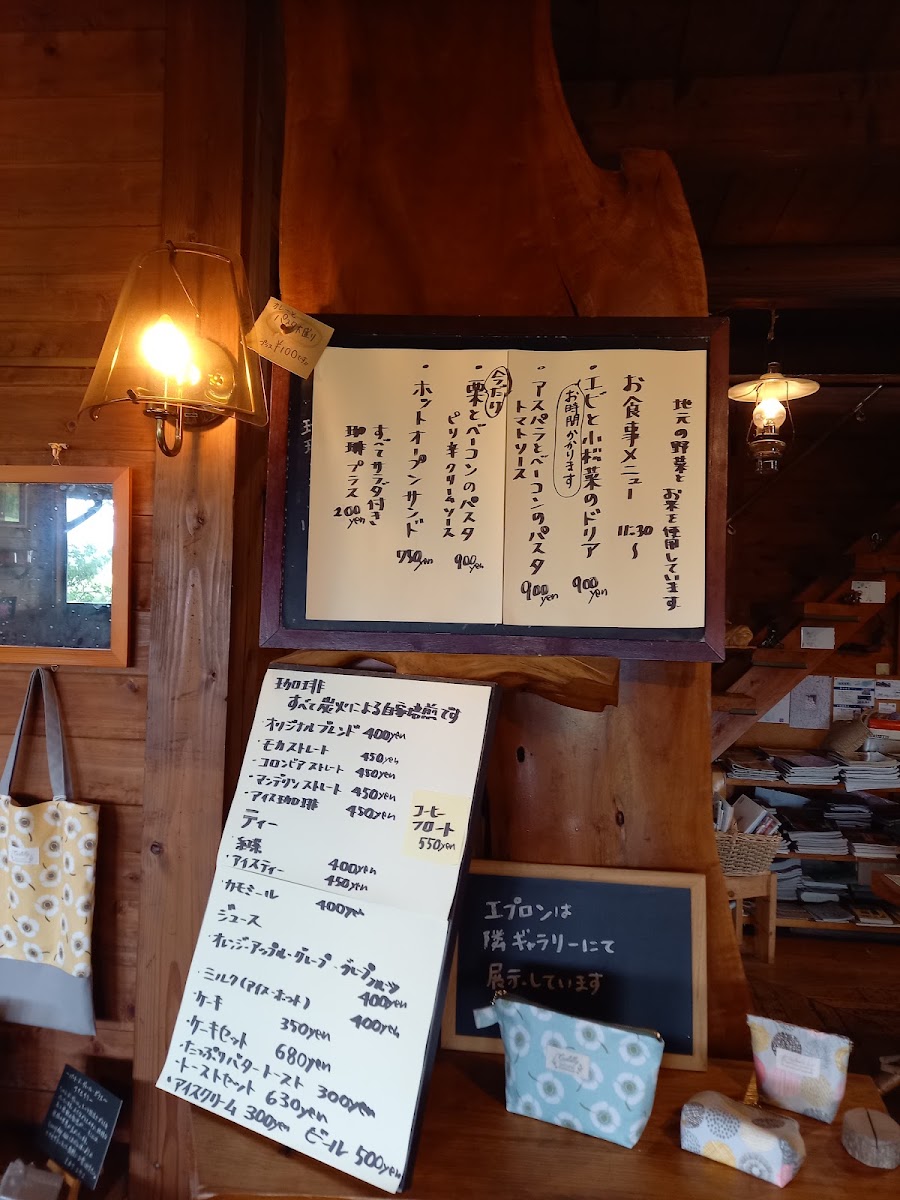 地元の野菜と
お米を使用しています
お食事メニュー 11:30〜
・エビと小松菜のドリア 900yen
お時間かかります
・アスパラとベーコンのパスタ 900yen
トマトソース
今だけ
・栗とベーコンのパスタ 900yen
ピリ辛クリームソース
・ホットオープンサンド 750yen
すべてサラダ付き
珈琲プラス 200yen
¥100
珈琲
すべて炭火による自家焙煎です
・オリジナルブレンド 400yen
・モカストレート 450yen
・コロンビアストレート 450yen
・マンデリンストレート 450yen
・アイス珈琲 450yen
コーヒー
フロート
550yen
ティー
・紅茶 400yen
・アイスティー 450yen
・カモミール 400yen
ジュース
・オレンジ・アップル・グレープ・グレープフルーツ 400yen
・ミルク(アイス・ホット) 400yen
・ケーキ 350yen
・ケーキセット 680yen
・たっぷりバタートースト 300yen
・トーストセット 630yen
・アイスクリーム 300yen ビール 500yen
エプロンは
隣ギャラリーにて
展示しています